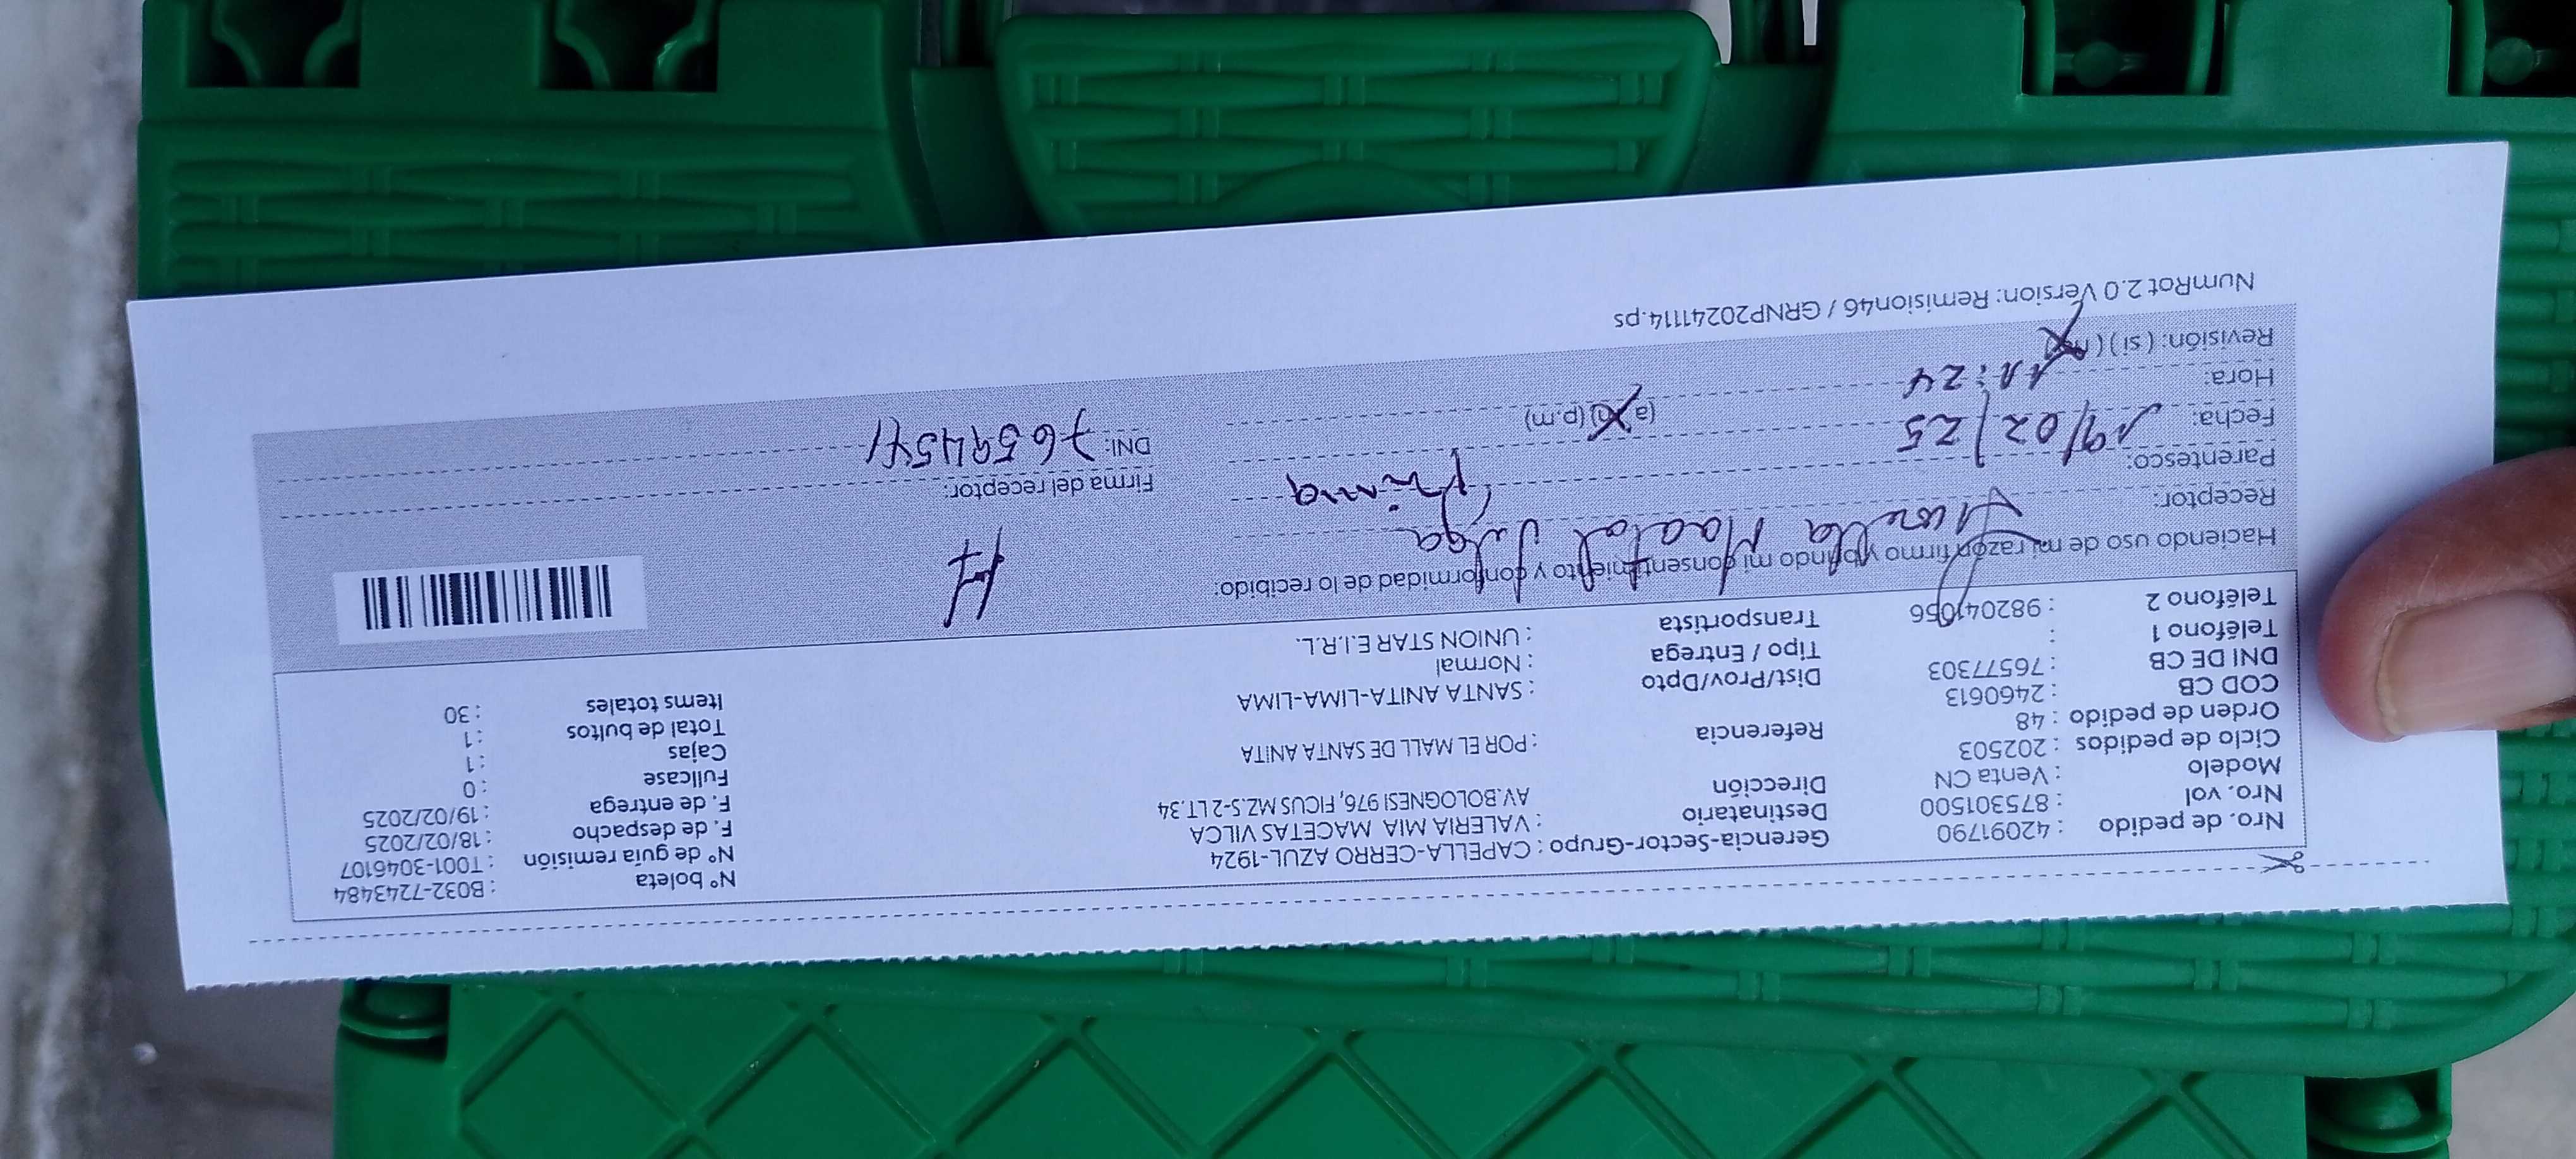 Nro. de pedido : 42091790 Gerencia-Sector-Grupo : CAPELLA-CERRO AZUL-1924 N° boleta : B032-7243484
Nro. vol : 875301500 Destinatario : VALERIA MIA MACETAS VILCA N° de guía remisión : T001-3046107
Modelo : Venta CN Dirección AV.BOLOGNESI 976, FICUS MZ.S-2 LT.34 F. de despacho : 18/02/2025
Ciclo de pedidos : 202503 F. de entrega : 19/02/2025
Orden de pedido : 48 Referencia : POR EL MALL DE SANTA ANITA Fullcase : 0
COD CB : 2460613 Cajas : 1
DNI DE CB : 76577303 Dist/Prov/Dpto : SANTA ANITA-LIMA-LIMA Total de bultos : 1
Teléfono 1 : Tipo / Entrega : Normal Items totales : 30
Teléfono 2 : 982041056 Transportista : UNION STAR E.I.R.L.
Haciendo uso de mi razón firmo y brindo mi consentimiento y conformidad de lo recibido:
Receptor:
Parentesco: Prima Firma del receptor:
Fecha: 19/02/25 DNI: 76594541
Hora: 11:24 (a.m) (p.m)
Revisión: ( si ) ( no )
NumRot 2.0 Version: Remision46 / GRNP20241114.ps